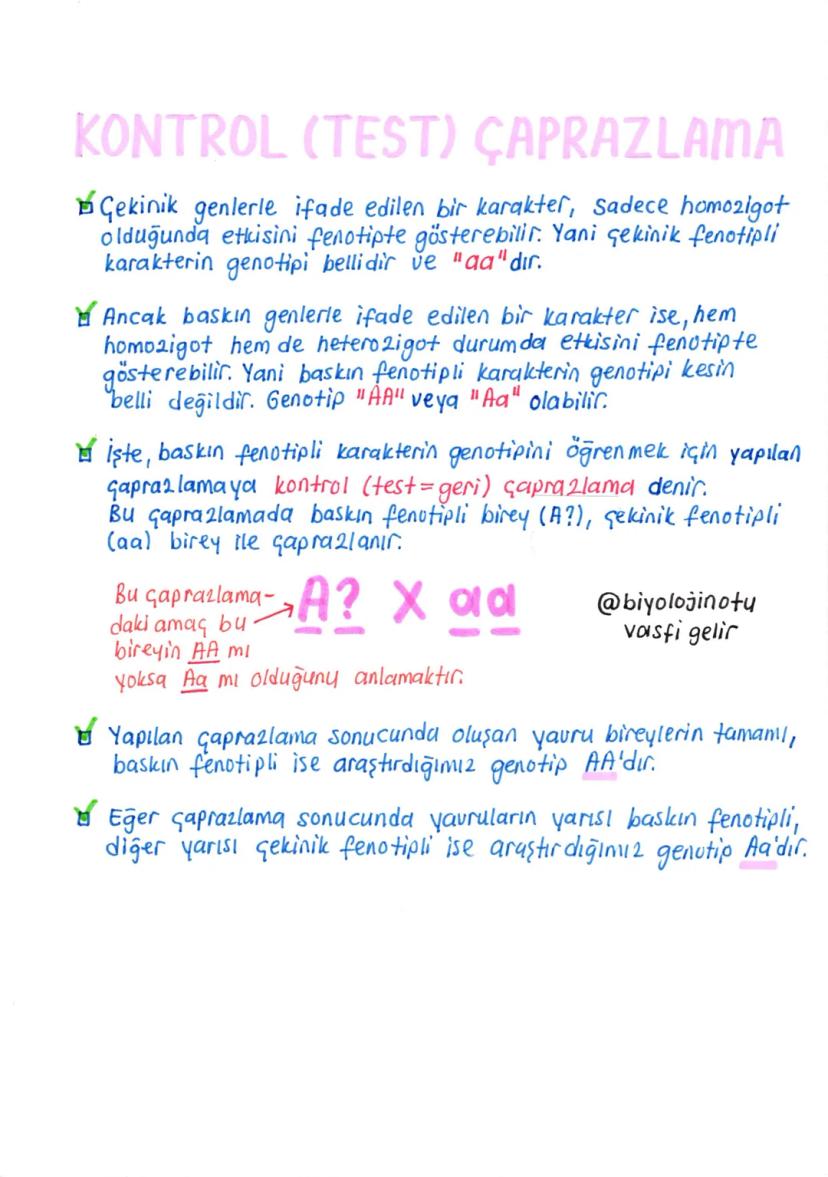 KONTROL (TEST) ÇAPRAZLAMA
Çekinik genlerle ifade edilen bir karakter, sadece homozigot
olduğunda etkisini fenotipte gösterebilir. Yani çekinik fenotipli
karakterin genotipi bellidir ve "aa"dır.
Ancak baskın genlerle ifade edilen bir karakter ise, hem
homozigot hem de heterozigot durumda etkisini fenotipte
gösterebilir. Yani baskın fenotipli karakterin genotipi kesin
belli değildir. Genotip "AA" veya "Aa" olabilir.
İşte, baskın fenotipli karakterin genotipini öğrenmek için yapılan
çaprazlamaya kontrol (test=geri) çaprazlama denir.
Bu çaprazlamada baskın fenotipli birey (A?), çekinik fenotipli
(aa) birey ile çaprazlanır.
A? X aa
Bu çaprazlama-
daki amaç bu
bireyin AA mı
yoksa Aa mı olduğunu anlamaktır.
@biyolojinotu
vasfi gelir
Yapılan çaprazlama sonucunda oluşan yavru bireylerin tamamı,
baskın fenotipli ise araştırdığımız genotip AA'dır.
Eğer çaprazlama sonucunda yavruların yarısı baskın fenotipli,
diğer yarısı çekinik fenotipli ise araştırdığımız genotip Aa'dır.